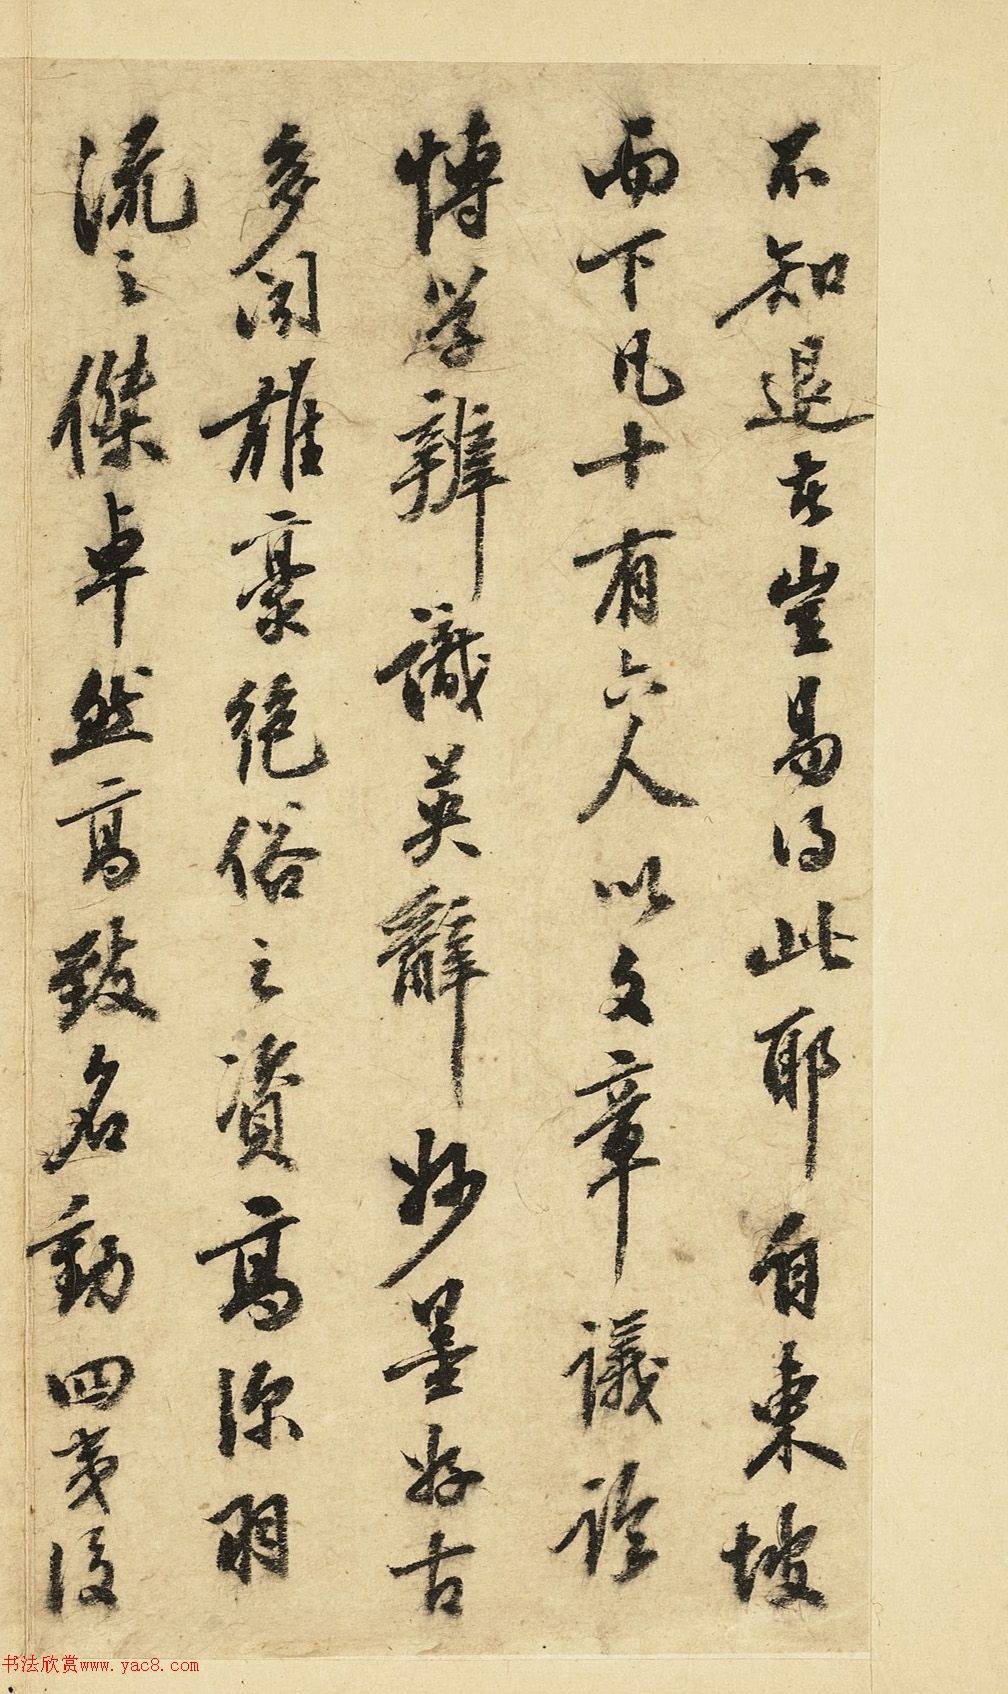 不知退者豈易得此耶自東坡
而下凡十有六人以文章議論
博學辨識英辭妙墨好古
多聞雄豪絶俗之資高深羽
流之傑卓然高致名動四夷後
书法欣赏www.yac8.com